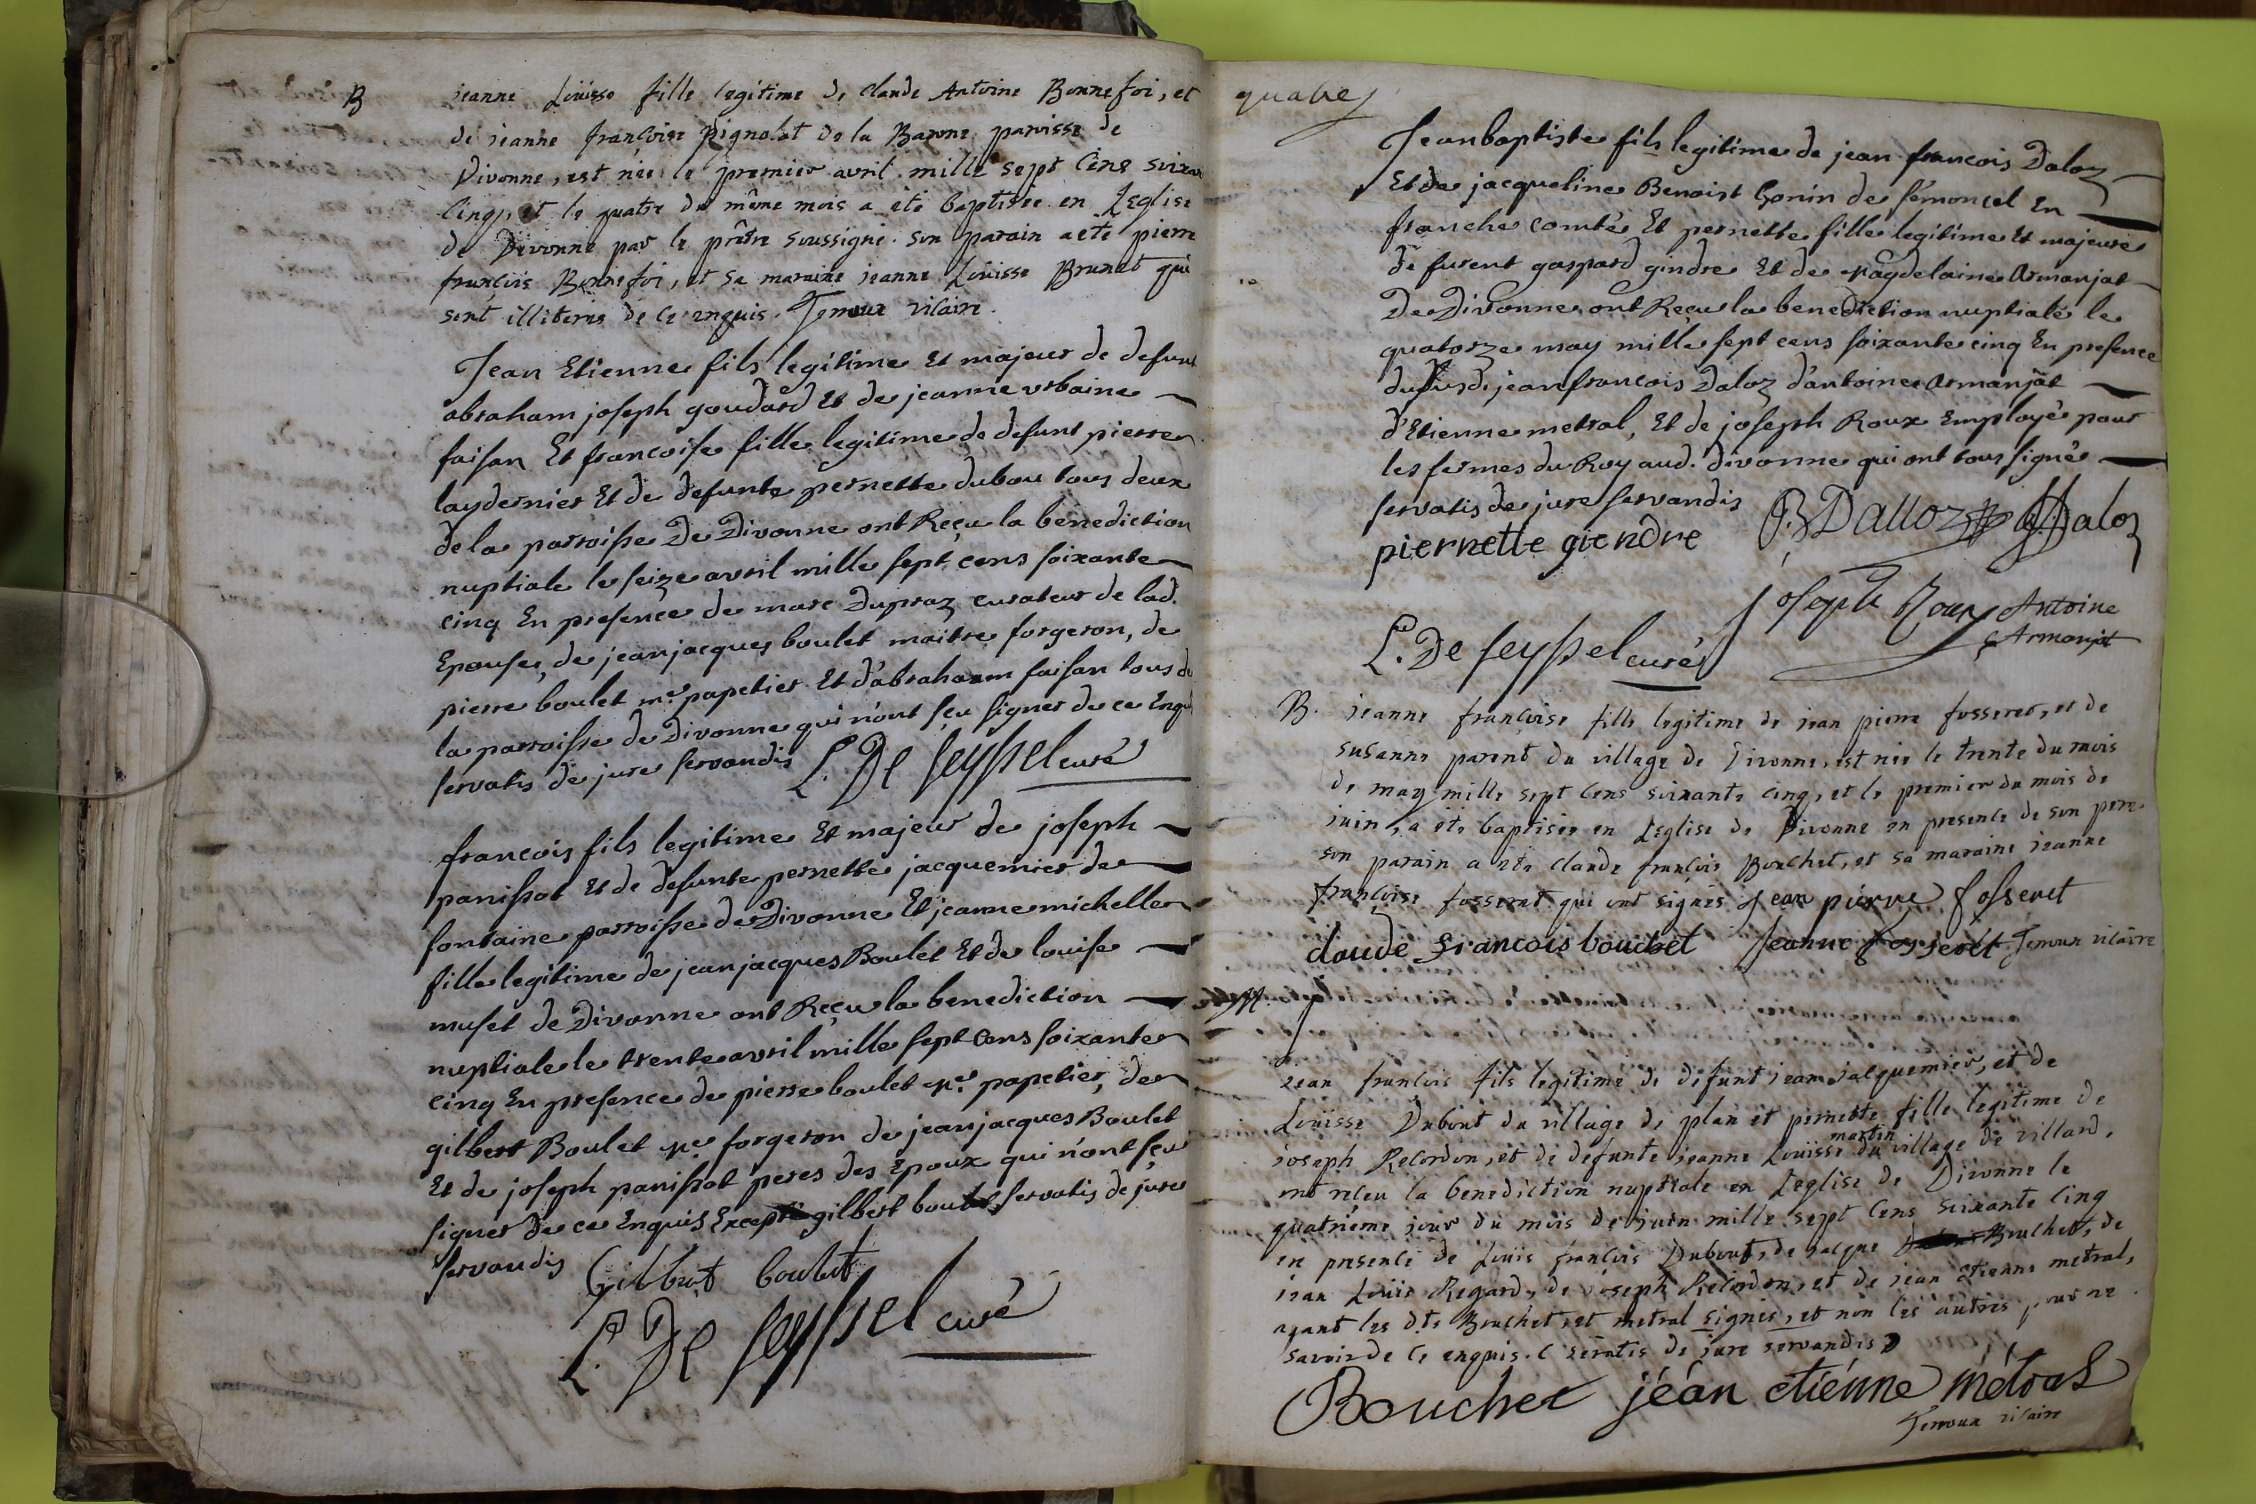 B
jeanne Loüise fille legitime de claude Antoine Bonnefoi, et
de jeanne françoise pignolet de la Barone paroisse de
Divonne, est née le premier avril mille sept cens soixan
cinq, et le quatre du même mois a été baptisée en Leglise
de Divonne par le prêtre soussigné. son parain a eté pierre
françois Bonnefoi, et sa maraine jeanne Loüisse Brunet qui
sont illiterés de ce enquis. Temoux vicaire.
Jean Etienne fils legitime Et majeur de defunt
abraham joseph goudard Et de jeanne urbaine
faisan Et francoise fille legitime de defunt pierre
laydernier Et de defunte pernette dubou tous deux
de la parroisse De Divonne ont Reçu la benediction
nuptiale le seize avril mille sept cens soixante
cinq En presence de marc Dupraz curateur de lad.
Epouse, de jean jacques boulet maitre forgeron, de
pierre boulet me. papetier Et d'abraham faisan tous de
la parroisse de Divonne qui n'ont sçu signer de ce Enqui
servatis de jure servandis L. De Seyssel curé
francois fils legitime Et majeur de joseph
panissot Et de defunte pernette jacquemier de
fontaine parroisse de Divonne Et jeanne michelle
fille legitime de jean jacques Boulet Et de louise
muset de Divonne ont Reçu la benediction
nuptiale le trente avril mille sept cens soixante
cinq En presence de pierre boulet me. papetier, de
gilbert Boulet me. forgeron de jean jacques Boulet
Et de joseph panissot peres des Epoux qui n'ont sçu
signer de ce Enquis Excepté gilbert boulet, servatis de jure
servandis Gilbert boulet
L. De Seyssel curé
quatre
Jean baptiste fils legitime de jean francois Daloz
Et de jacqueline Benoist Gonin de semoncel En
franche comté Et pernette fille legitime Et majeure
de furent gaspard gindre Et de magdelaine Armanjat
De Divonne ont Reçu la benediction nuptiale le
quatorze may mille sept cens soixante cinq En presence
dususd. jean francois Daloz d'antoine Armanjat
d'Etienne metral, Et de joseph Roux Employé pour
les fermes du Roy aud. divonne qui ont tous signé
servatis de jure servandis
piernette giendre JB Dalloz JF Daloz
joseph Roux Antoine
Armanjat
L. De Seyssel curé
B. jeanne françoise fille legitime de jean pierre fosseret, et de
susanne parent du village de Divonne, est née le trente du mois
de may mille sept cens soixante cinq, et le premier du mois de
juin, a eté baptisée en Leglise de Divonne en presence de son pere
son parain a eté claude françois Bouchet, et sa maraine jeanne
françoise fosseret qui ont signés jean piérre fosseret
claude francois bouchet jeanne fosserét Temoux vicaire
M.
jean françois fils legitime de defunt jean jacquemier, et de
Loüisse Dubout du village de plan et pernette fille legitime de
joseph Recordon, et de defunte jeanne Loüisse martin du village de villard,
ont reçu la benediction nuptiale en Leglise de Divonne le
quatrième jour du mois de juin mille sept cens soixante cinq
en presence de Loüis françois Dubout, de jacque Bouchet, de
jean Loüis Regard, de joseph Recordon, et de jean etienne metral,
ayant les dts Bouchet, et metral signés, et non les autres pour ne
savoir de ce enquis. servatis de jure servandis
Bouchet jéan etiénne métral
Temoux vicaire